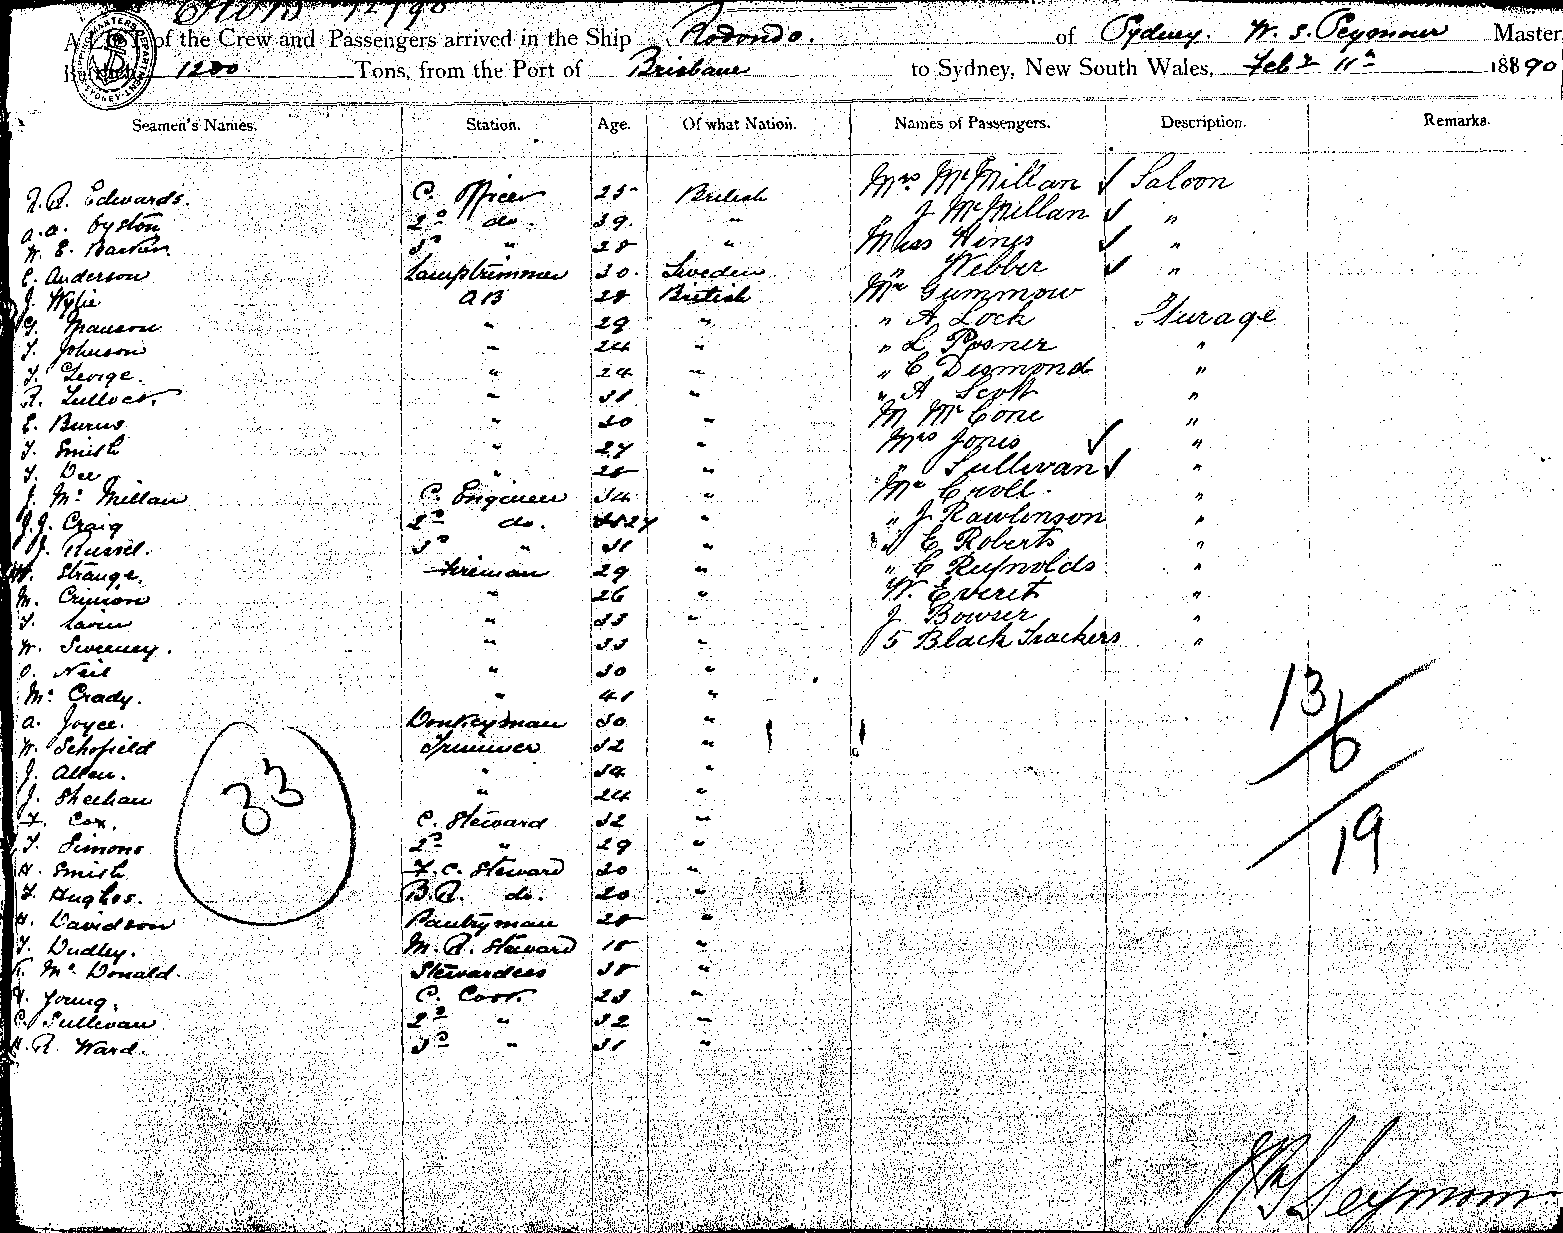 A List of the Crew and Passengers arrived in the Ship Rodondo. of Sydney. W. S. Seymour Master
1200 Tons, from the Port of Brisbane to Sydney, New South Wales, Feby 11th 1890
Seamen's Names. Station. Age. Of what Nation. Names of Passengers. Description. Remarks.
Edwards. C. Officer 25 British Mrs McMillan ✓ Saloon
a. a. Oyston 2d do. 39. " " J McMillan ✓ "
W. E. Barker. 3d " 28 " Miss Hines ✓ "
E. Anderson Lamptrimmer 30. Sweden " Webber ✓ "
J. Wylie AB 28 British Mr Gummow "
Manson " 29 " " A Lock Sturage
T. Johnson " 24 " " L Posner "
T. George. " 24 " " C Desmond "
R. Tulloch. " 31 " " A Scott "
E. Burns " 30 " M McCone "
T. Smith " 27 " Mrs Jones ✓ "
T. Dee " 28 " " Sullivan ✓ "
J. Mc Millan C. Engineer 34 " Mr Croll. "
J. J. Craig 2d do. 27 " " J Rawlinson "
J. Russel. 3d " 31 " " E Roberts "
W. Strange. Fireman 29 " " C Reynolds "
M. " 26 " W. Everett "
T. Lavin " 33 " J Bowser "
W. Sweeney. " 33 " 5 Black Trackers "
O. Neil " 30 "
Mc Crady. " 41 "
A. Joyce. Donkeyman 30 "
W. Schofield Trimmer 32 "
J. Allen. " 34 "
J. Sheehan " 24 "
Cox. C. Steward 32 "
T. Simons 2d " 29 "
H. Smith F. C. Steward 20 "
T. Hughes. B. R. do. 20 "
H. Davidson Pantryman 28 "
T. Dudley. M. R. Steward 18 "
Mc Donald. Stewardess 38 "
Young. C. Cook. 23 "
C. Sullivan 2d " 32 "
H. R. Ward. 3d " 31 "
33
13
6
19
W S Seymour